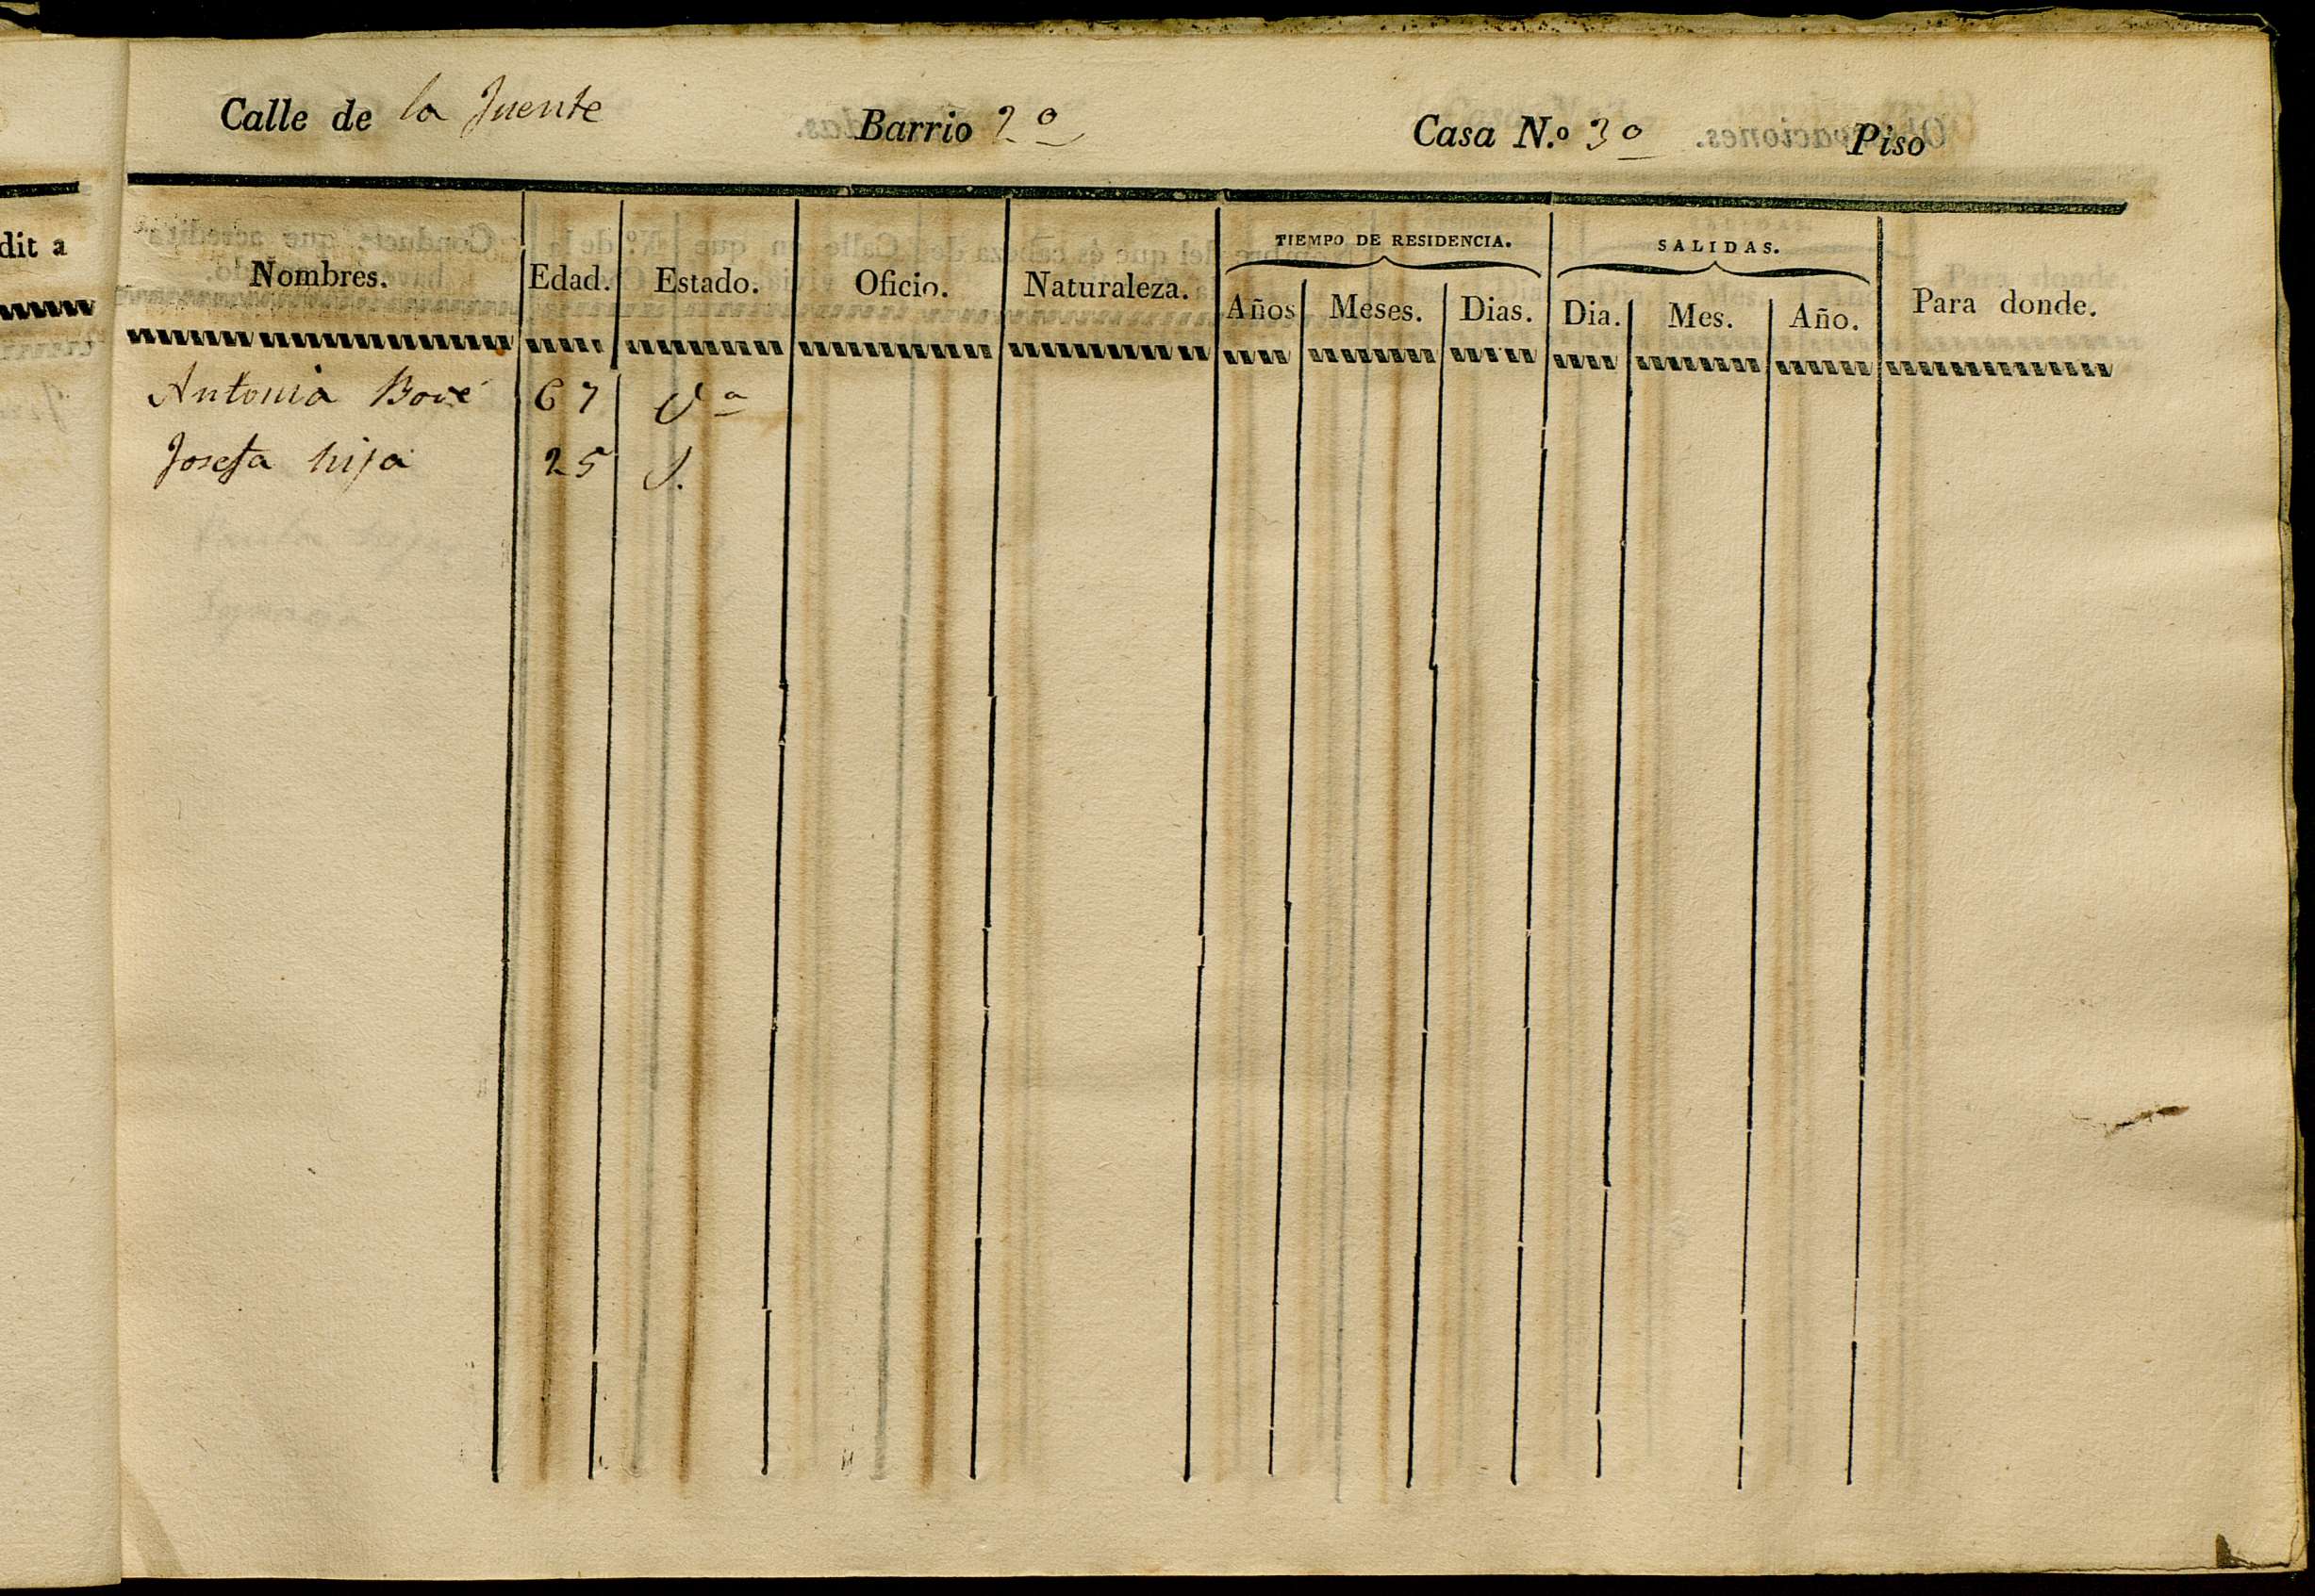 dit a
Calle de la Fuente Barrio 2º Casa N.º 3º Piso
TIEMPO DE RESIDENCIA. SALIDAS.
Nombres. Edad. Estado. Oficio. Naturaleza. Años Meses. Dias. Dia. Mes. Año. Para donde.
Antonia Bové 67 Vª
Josefa hija 25 S.